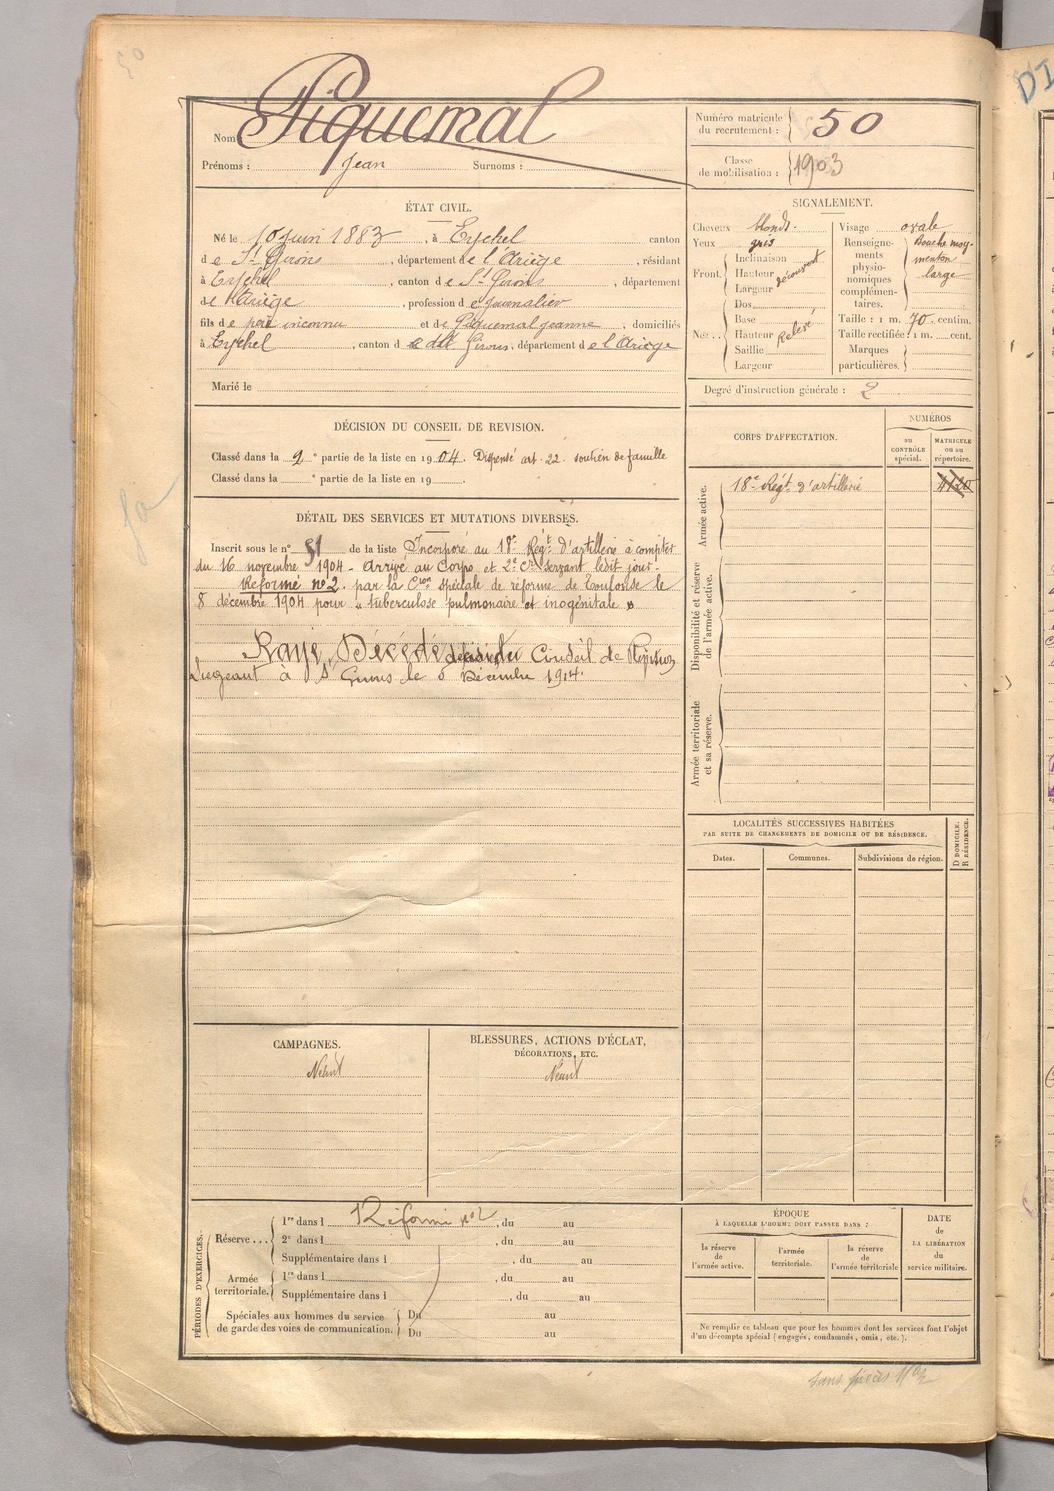 50
DI
Nom : Piquemal
Prénoms : Jean Surnoms :
Numéro matricule du recrutement : 50
Classe de mobilisation : 1903
ÉTAT CIVIL.
Né le 10 juin 1883, à Eychel canton
de St Girons, département de l'Ariège, résidant
à Eychel, canton de St Girons, département
de l'Ariège, profession de journalier
fils de père inconnu et de Piquemal Jeanne, domiciliés
à Eychel, canton de dt Girons, département de l'Ariège
Marié le
SIGNALEMENT.
Cheveux blonds.
Yeux gris
Front. Inclinaison
Hauteur découvert
Largeur
Nez.. Dos
Base
Hauteur Relevé
Saillie
Largeur
Visage ovale
Renseignements physionomiques complémentaires. Bouche moy- menton large
Taille : 1 m. 70 centim.
Taille rectifiée : 1 m. cent.
Marques particulières.
Degré d'instruction générale : 2
DÉCISION DU CONSEIL DE REVISION.
Classé dans la 2e partie de la liste en 1904. Dispensé art. 22. soutien de famille
Classé dans la e partie de la liste en 19 .
DÉTAIL DES SERVICES ET MUTATIONS DIVERSES.
Inscrit sous le n° 51 de la liste Incorporé au 18e Régt d'artillerie à compter
du 16 novembre 1904 - Arrivé au Corps et 2e cr servant ledit jour-
Réformé n°2. par la Cion spéciale de réforme de Toulouse le
8 décembre 1904 pour « tuberculose pulmonaire et
Rayé, Décédé Conseil de Révision
Siégeant à St Girons le Décembre 1914.
CORPS D'AFFECTATION.
NUMÉROS
au CONTRÔLE spécial.
MATRICULE ou au répertoire.
Armée active.
18e Régt d'artillerie 4120
Disponibilité et réserve de l'armée active.
Armée territoriale et sa réserve.
LOCALITÉS SUCCESSIVES HABITÉES
PAR SUITE DE CHANGEMENTS DE DOMICILE OU DE RÉSIDENCE.
Dates. Communes. Subdivisions de région.
D DOMICILE.
R RÉSIDENCE.
CAMPAGNES.
Néant
BLESSURES, ACTIONS D'ÉCLAT,
DÉCORATIONS, ETC.
Néant
PÉRIODES D'EXERCICES.
Réserve... 1re dans l Réformé n°2, du au
2e dans l , du au
Supplémentaire dans l , du au
Armée territoriale. 1re dans l , du au
Supplémentaire dans l , du au
Spéciales aux hommes du service
de garde des voies de communication. Du au
Du au
ÉPOQUE
À LAQUELLE L'HOMME DOIT PASSER DANS :
la réserve de l'armée active.
l'armée territoriale.
la réserve de l'armée territoriale
DATE
de
LA LIBÉRATION
du
service militaire.
Ne remplir ce tableau que pour les hommes dont les services font l'objet
d'un décompte spécial (engagés, condamnés, omis, etc.).